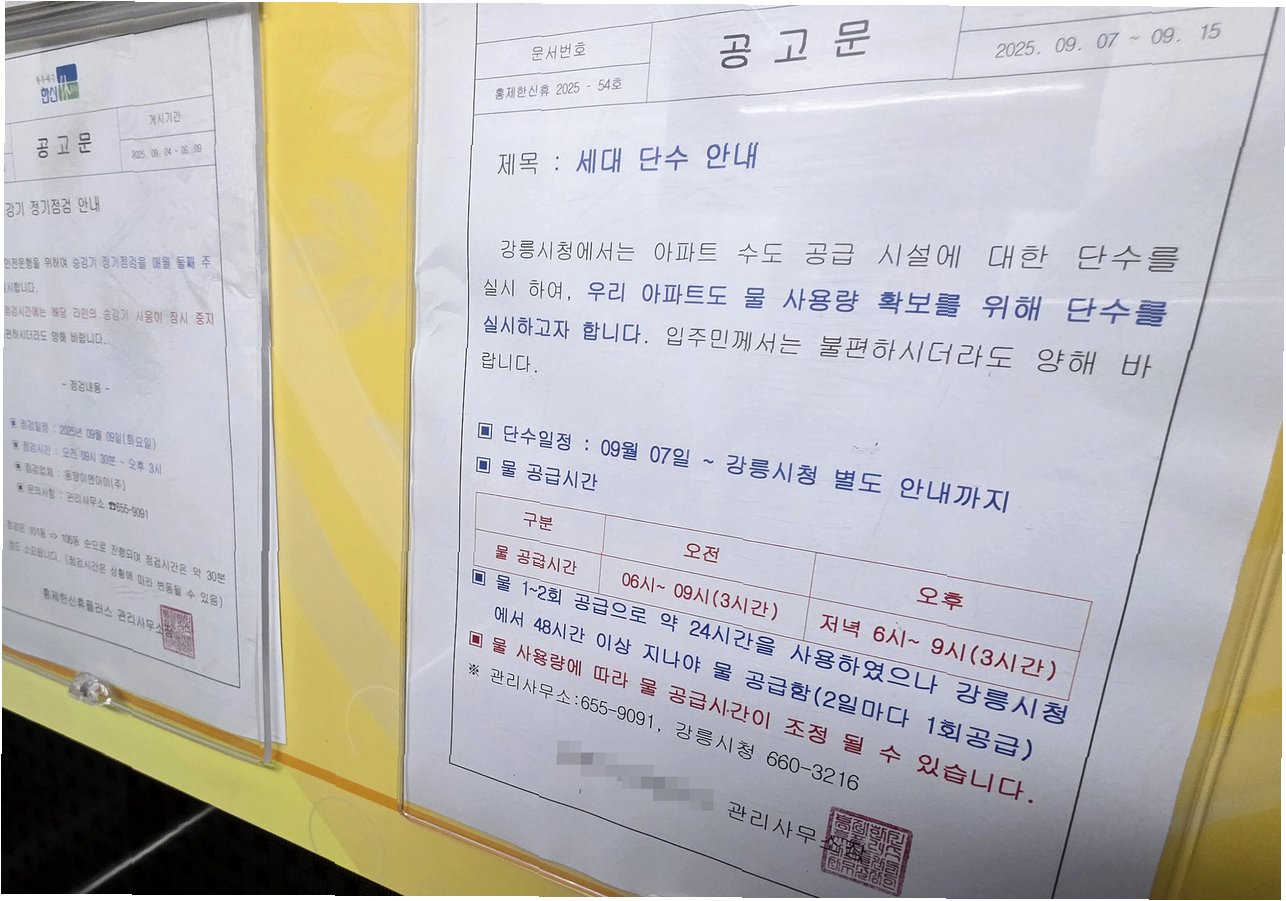 한신휴
게시기간
공고문
2025. 09. 04 ~ 09. 09
강기 정기점검 안내
안전운행을 위하여 승강기 정기점검을 매월 둘째 주
시합니다.
점검시간에는 해당 라인의 승강기 사용이 잠시 중지
편하시더라도 양해 바랍니다.
- 점검내용 -
▣ 점검일정 : 2025년 09월 09일(화요일)
▣ 점검시간 : 오전 09시 30분 ~ 오후 3시
▣ 점검업체 : 동양이엔아이(주)
▣ 문의사항 : 관리사무소 ☎655-9091
점검은 101동 => 106동 순으로 진행되며 점검시간은 약 30분
정도 소요됩니다. (점검시간은 상황에 따라 변동될 수 있음)
홍제한신휴플러스 관리사무소장
문서번호
공고문
2025. 09. 07 ~ 09. 15
홍제한신휴 2025 - 54호
제목 : 세대 단수 안내
강릉시청에서는 아파트 수도 공급 시설에 대한 단수를
실시 하여, 우리 아파트도 물 사용량 확보를 위해 단수를
실시하고자 합니다. 입주민께서는 불편하시더라도 양해 바
랍니다.
▣ 단수일정 : 09월 07일 ~ 강릉시청 별도 안내까지
▣ 물 공급시간
구분 오전 오후
물 공급시간 06시~ 09시(3시간) 저녁 6시~ 9시(3시간)
▣ 물 1~2회 공급으로 약 24시간을 사용하였으나 강릉시청
에서 48시간 이상 지나야 물 공급함(2일마다 1회공급)
▣ 물 사용량에 따라 물 공급시간이 조정 될 수 있습니다.
※ 관리사무소:655-9091, 강릉시청 660-3216
관리사무소장